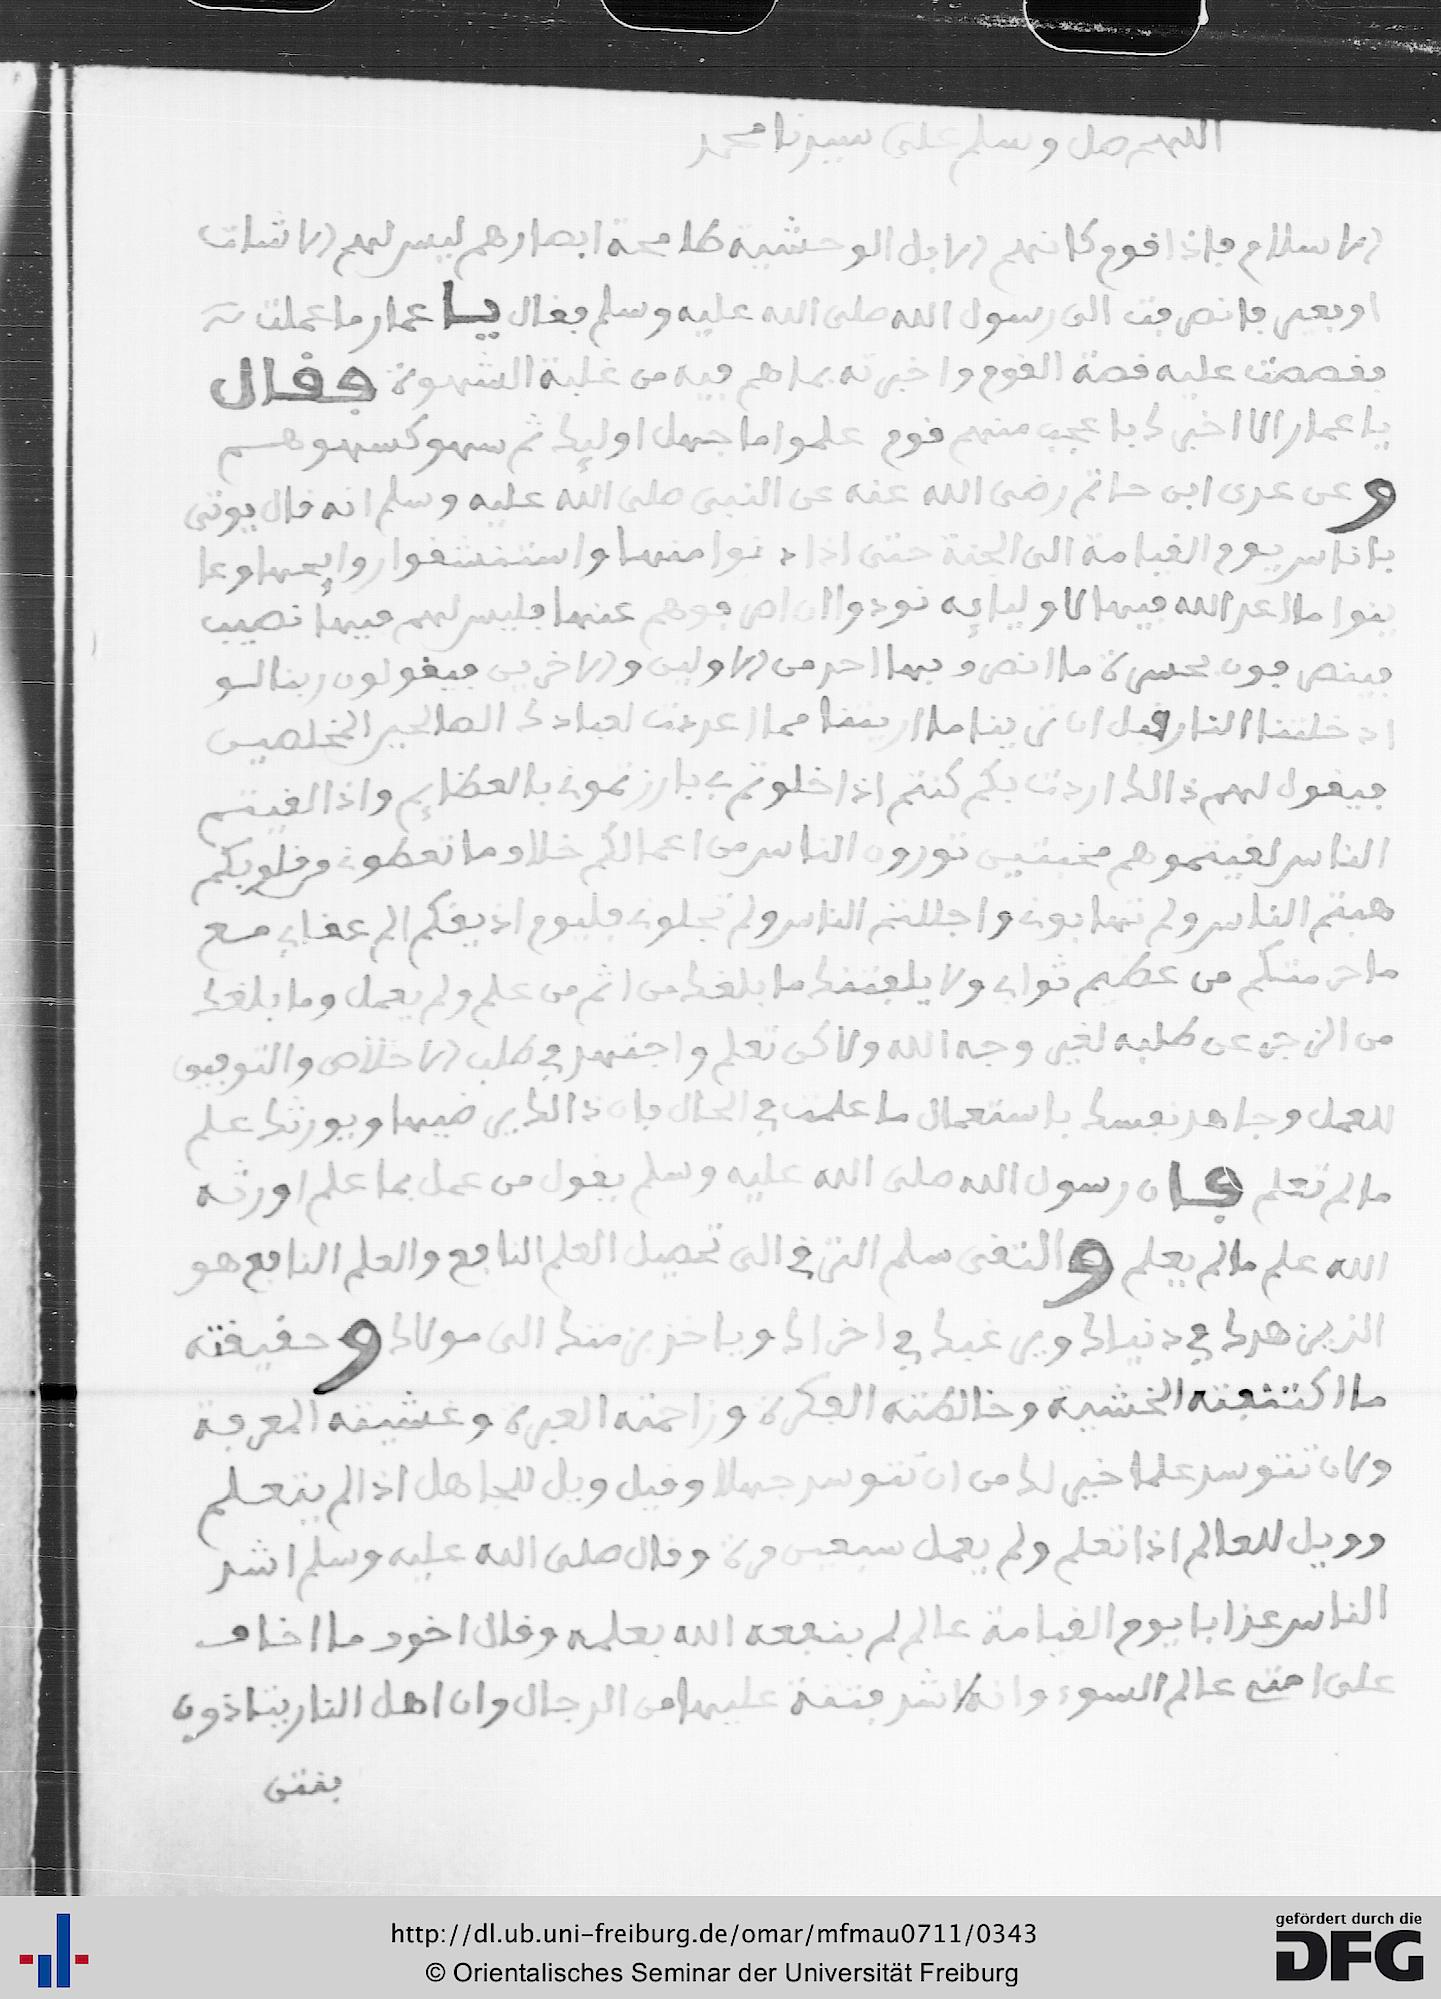 اللهم صل وسلم على سيدنا محمد
الاسلام فاذا قوم كانهم الابل الوحشية طامحة ابصارهم ليس لهم الا شات
او بعير فانصرفت الى رسول الله صلى الله عليه وسلم فقال يا عمار ما عملت
فقصصت عليه قصة القوم واخبرته بما هم فيه من غلبة الشهوة فقال
يا عمار الا اخبرك باعجب منهم قوم علموا ما جهل اوليك ثم سهو كسهوهم
وعن عدى ابن حاتم رضى الله عنه عن النبى صلى الله عليه وسلم انه قال يوتى
باناس يوم القيامة الى الجنة حتى اذا دنوا منها واستنشقوا روايحها وعا
ينوا ما اعد الله فيها لاوليايه نودوا ان اصرفوهم عنها فليس لهم فيها نصيب
فينصرفون بحسرة ما انصرف بها احد من الاولين والاخرين فيقولون ربنا لو
ادخلتنا النار قبل ان ترينا ما اريتنا مما اعددت لعبادك الصالحين المخلصين
فيقول لهم ذالك اردت بكم كنتم اذا خلوتم بى بارزتمونى بالعظايم واذا لقيتم
الناس لقيتموهم مخبتين تورون الناس من اعمالكم خلاف ما تعطونى من قلوبكم
هبتم الناس ولم تهابونى واجللتم الناس ولم تجلونى فاليوم اذيقكم اليم عقابى مع
ما حرمتكم من عظيم ثوابى ولا يلفتنك ما بلغك من اثم من علم ولم يعمل وما بلغك
من الزجر عن طلبه لغير وجه الله ولاكن تعلم واجتهد في طلب الاخلاص والتوفيق
للعمل وجاهد نفسك باستعمال ما علمت في الحال فان ذالك يرضيها ويورثك علم
ما لم تعلم فان رسول الله صلى الله عليه وسلم يقول من عمل بما علم اورثه
الله علم ما لم يعلم والتقى سلم الترقي الى تحصيل العلم النافع والعلم النافع هو
الذى يزهدك في دنياك ويرغبك في اخراك وياخذ بزمتك الى مولاك وحقيقته
ما اكتنفته الخشية وخالطته الفكرة وزاحمته العبرة وغشيته المعرفة
ولان تتوسد علما خير لك من ان تتوسد جهلا وقيل ويل للجاهل اذا لم يتعلم
وويل للعالم اذا تعلم ولم يعمل سبعين مرة وقال صلى الله عليه وسلم اشد
الناس عذابا يوم القيامة عالم لم ينفعه الله بعلمه وقال اخوف ما اخاف
على امتي عالم السوء وانه اشد فتنة عليها من الدجال وان اهل النار يتاذون
بنتن
http://dl.ub.uni-freiburg.de/omar/mfmau0711/0343
© Orientalisches Seminar der Universität Freiburg
gefördert durch die
DFG